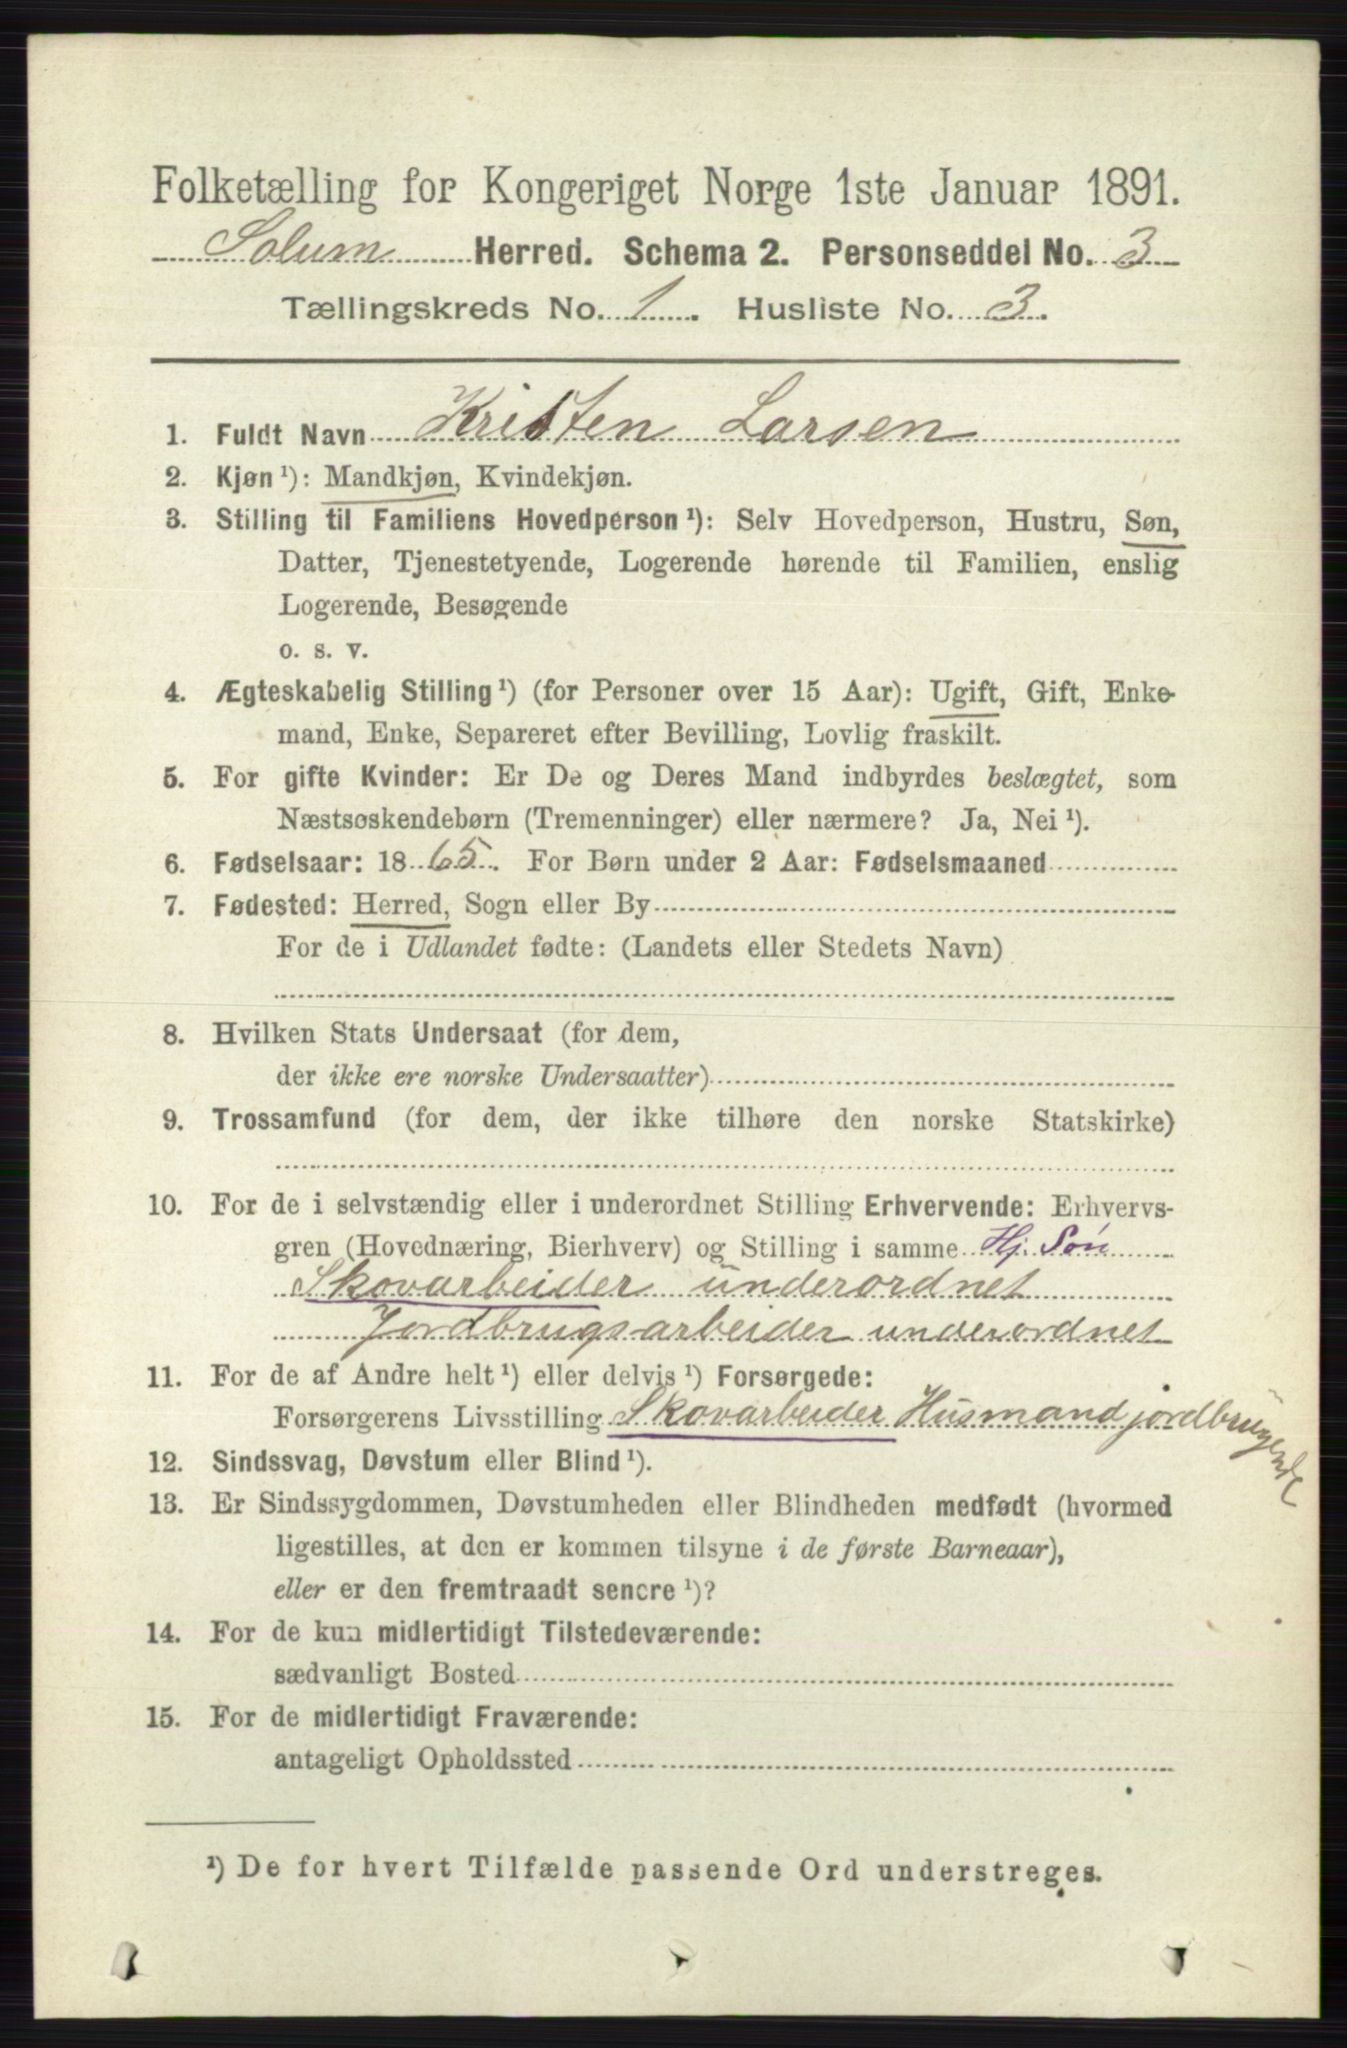 Folketælling for Kongeriget Norge 1ste Januar 1891.
Solum Herred. Schema 2. Personseddel No. 3
Tællingskreds No. 1. Husliste No. 3.
1. Fuldt Navn Kristen Larsen
2. Kjøn¹): Mandkjøn, Kvindekjøn.
3. Stilling til Familiens Hovedperson¹): Selv Hovedperson, Hustru, Søn,
Datter, Tjenestetyende, Logerende hørende til Familien, enslig
Logerende, Besøgende
o. s. v.
4. Ægteskabelig Stilling¹) (for Personer over 15 Aar): Ugift, Gift, Enke-
mand, Enke, Separeret efter Bevilling, Lovlig fraskilt.
5. For gifte Kvinder: Er De og Deres Mand indbyrdes beslægtet, som
Næstsøskendebørn (Tremenninger) eller nærmere? Ja, Nei¹).
6. Fødselsaar: 1865. For Børn under 2 Aar: Fødselsmaaned
7. Fødested: Herred, Sogn eller By
For de i Udlandet fødte: (Landets eller Stedets Navn)
8. Hvilken Stats Undersaat (for dem,
der ikke ere norske Undersaatter)
9. Trossamfund (for dem, der ikke tilhøre den norske Statskirke)
10. For de i selvstændig eller i underordnet Stilling Erhvervende: Erhvervs-
gren (Hovednæring, Bierhverv) og Stilling i samme Hj. Søn
Skovarbeider underordnet
Jordbrugsarbeider underordnet
11. For de af Andre helt¹) eller delvis¹) Forsørgede:
Forsørgerens Livsstilling Skovarbeider Husmand jordbrugende
12. Sindssvag, Døvstum eller Blind¹).
13. Er Sindssygdommen, Døvstumheden eller Blindheden medfødt (hvormed
ligestilles, at den er kommen tilsyne i de første Barneaar),
eller er den fremtraadt senere¹)?
14. For de kun midlertidigt Tilstedeværende:
sædvanligt Bosted
15. For de midlertidigt Fraværende:
antageligt Opholdssted
¹) De for hvert Tilfælde passende Ord understreges.